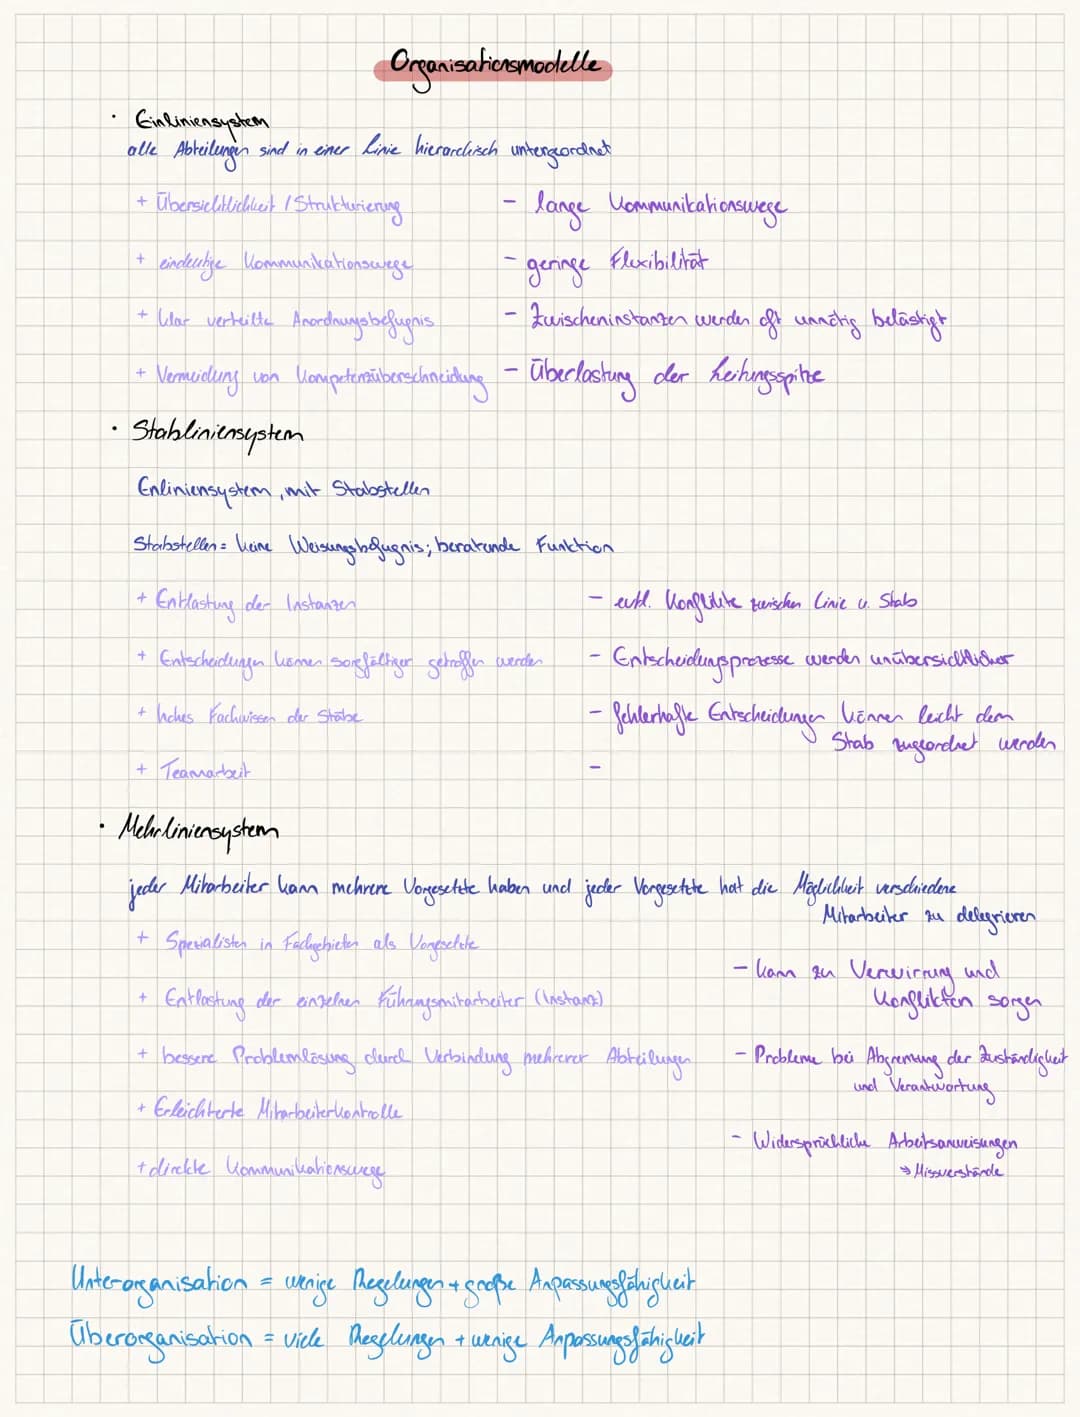 Organisationsmodelle
• Einliniensystem
alle Abteilungen sind in einer Linie hierarchisch untergeordnet
+ Übersichtlichkeit / Strukturierung - lange Kommunikationswege
+ eindeutige Kommunikationswege - geringe Flexibilität
+ klar verteilte Anordnungsbefugnis - Zwischeninstanzen werden oft unnötig belästigt
+ Vermeidung von Kompetenzüberschneidung - Überlastung der Leitungsspitze
• Stabliniensystem
Enliniensystem, mit Stabstellen
Stabstellen = keine Weisungsbefugnis; beratende Funktion
+ Entlastung der Instanzen - evtl. Konflikte zwischen Linie u. Stab
+ Entscheidungen können sorgfältiger getroffen werden - Entscheidungsprozesse werden unübersichtlicher
+ hohes Fachwissen der Stäbe - fehlerhafte Entscheidungen können leicht dem
Stab zugeordnet werden
+ Teamarbeit -
• Mehrliniensystem
jeder Mitarbeiter kann mehrere Vorgesetzte haben und jeder Vorgesetzte hat die Möglichkeit verschiedene
Mitarbeiter zu delegrieren
+ Spezialisten in Fachgebieten als Vorgesetzte
- kann zu Verwirrung und
Konflikten sorgen
+ Entlastung der einzelnen Führungsmitarbeiter (Instanz)
+ bessere Problemlösung durch Verbindung mehrerer Abteilungen - Probleme bei Abgrenzung der Zuständigkeit
und Verantwortung
+ Erleichterte Mitarbeiterkontrolle
- Widersprüchliche Arbeitsanweisungen
→ Missverstände
+ direkte Kommunikationswege
Unterorganisation = wenige Regelungen + große Anpassungsfähigkeit
Überorganisation = viele Regelungen + wenige Anpassungsfähigkeit